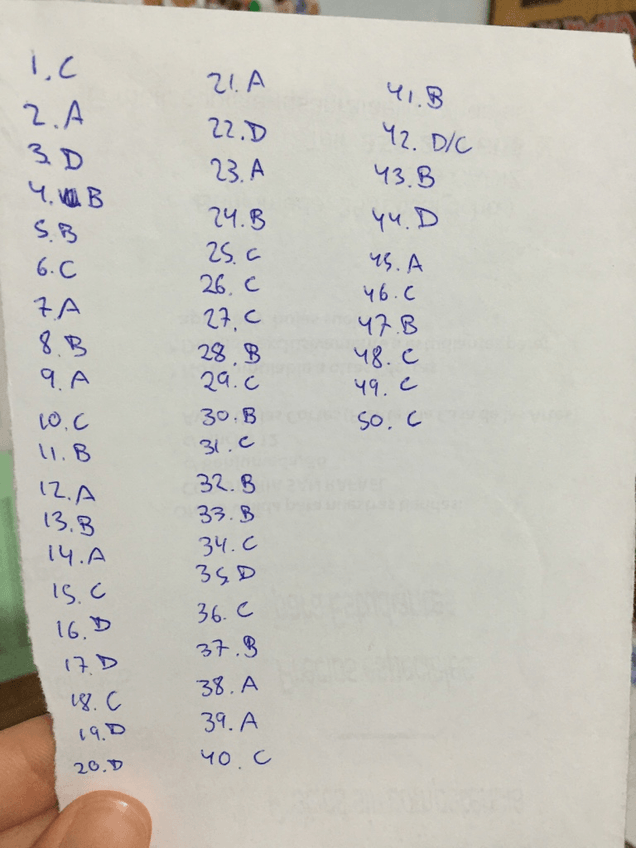 1. C
2. A
3. D
4. B
5. B
6. C
7. A
8. B
9. A
10. C
11. B
12. A
13. B
14. A
15. C
16. D
17. D
18. C
19. D
20. D
21. A
22. D
23. A
24. B
25. C
26. C
27. C
28. B
29. C
30. B
31. C
32. B
33. B
34. C
35. D
36. C
37. B
38. A
39. A
40. C
41. B
42. D/C
43. B
44. D
45. A
46. C
47. B
48. C
49. C
50. C